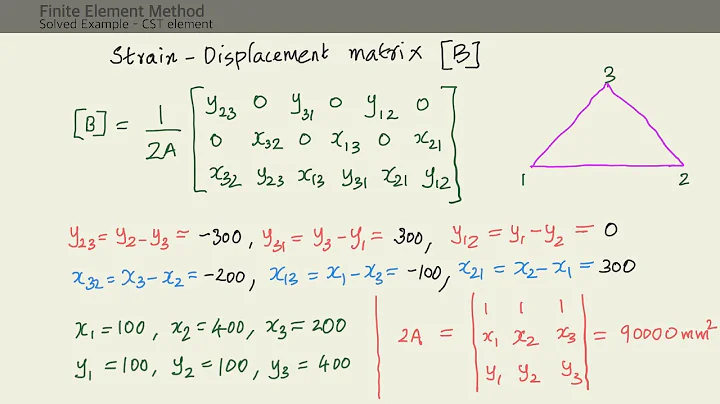 Finite Element Method
Solved Example - CST element
Strain - Displacement matrix [B]
[B] = 1/2A [y₂₃ 0 y₃₁ 0 y₁₂ 0
0 x₃₂ 0 x₁₃ 0 x₂₁
x₃₂ y₂₃ x₁₃ y₃₁ x₂₁ y₁₂]
3
1 2
y₂₃ = y₂ - y₃ = -300, y₃₁ = y₃ - y₁ = 300, y₁₂ = y₁ - y₂ = 0
x₃₂ = x₃ - x₂ = -200, x₁₃ = x₁ - x₃ = -100, x₂₁ = x₂ - x₁ = 300
x₁ = 100, x₂ = 400, x₃ = 200
y₁ = 100, y₂ = 100, y₃ = 400
2A = |1 1 1
x₁ x₂ x₃
y₁ y₂ y₃| = 90000 mm²